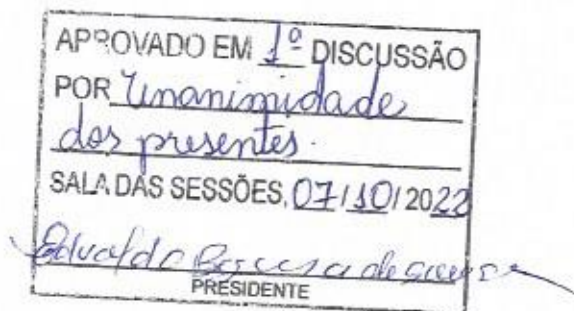 APROVADO EM 1º DISCUSSÃO
POR Unanimidade
dos presentes.
SALA DAS SESSÕES, 07/10/2022
Edvaldo
PRESIDENTE